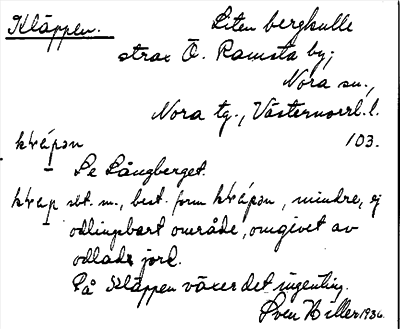 Kläppen. Liten bergkulle
strax Ö. Ramsta by,
Nora sn.,
Nora tg., Västernorrl. l.
103.
Se Långberget.
sbt. m., best. form, mindre, ej
odlingsbart område, omgivet av
odlade jord.
På Kläppen växer det ingenting.
Sven Hiller 1936.